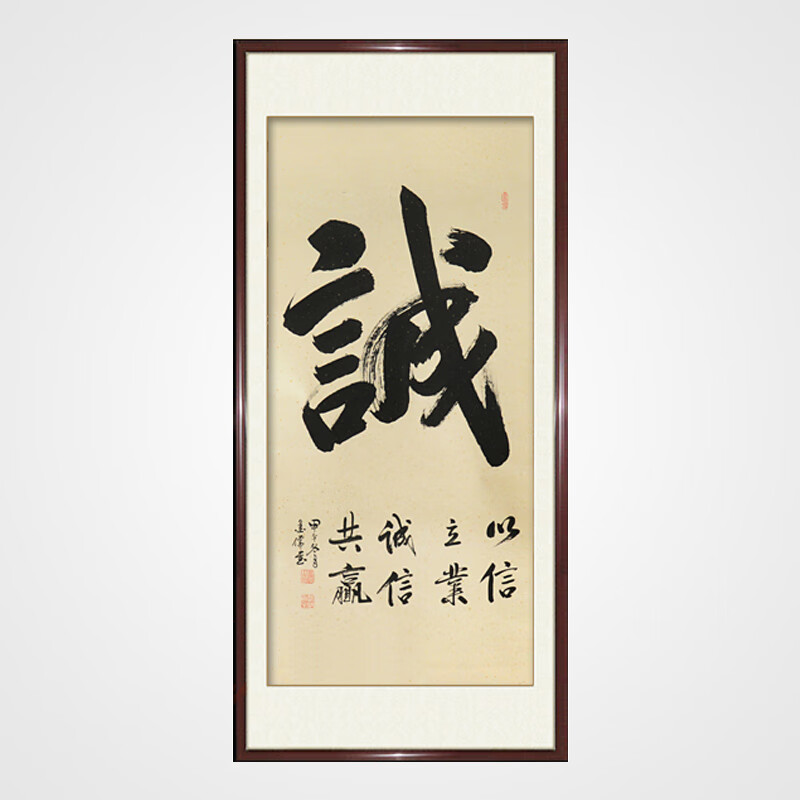 誠
以信
立業
诚信
共赢
甲午冬月